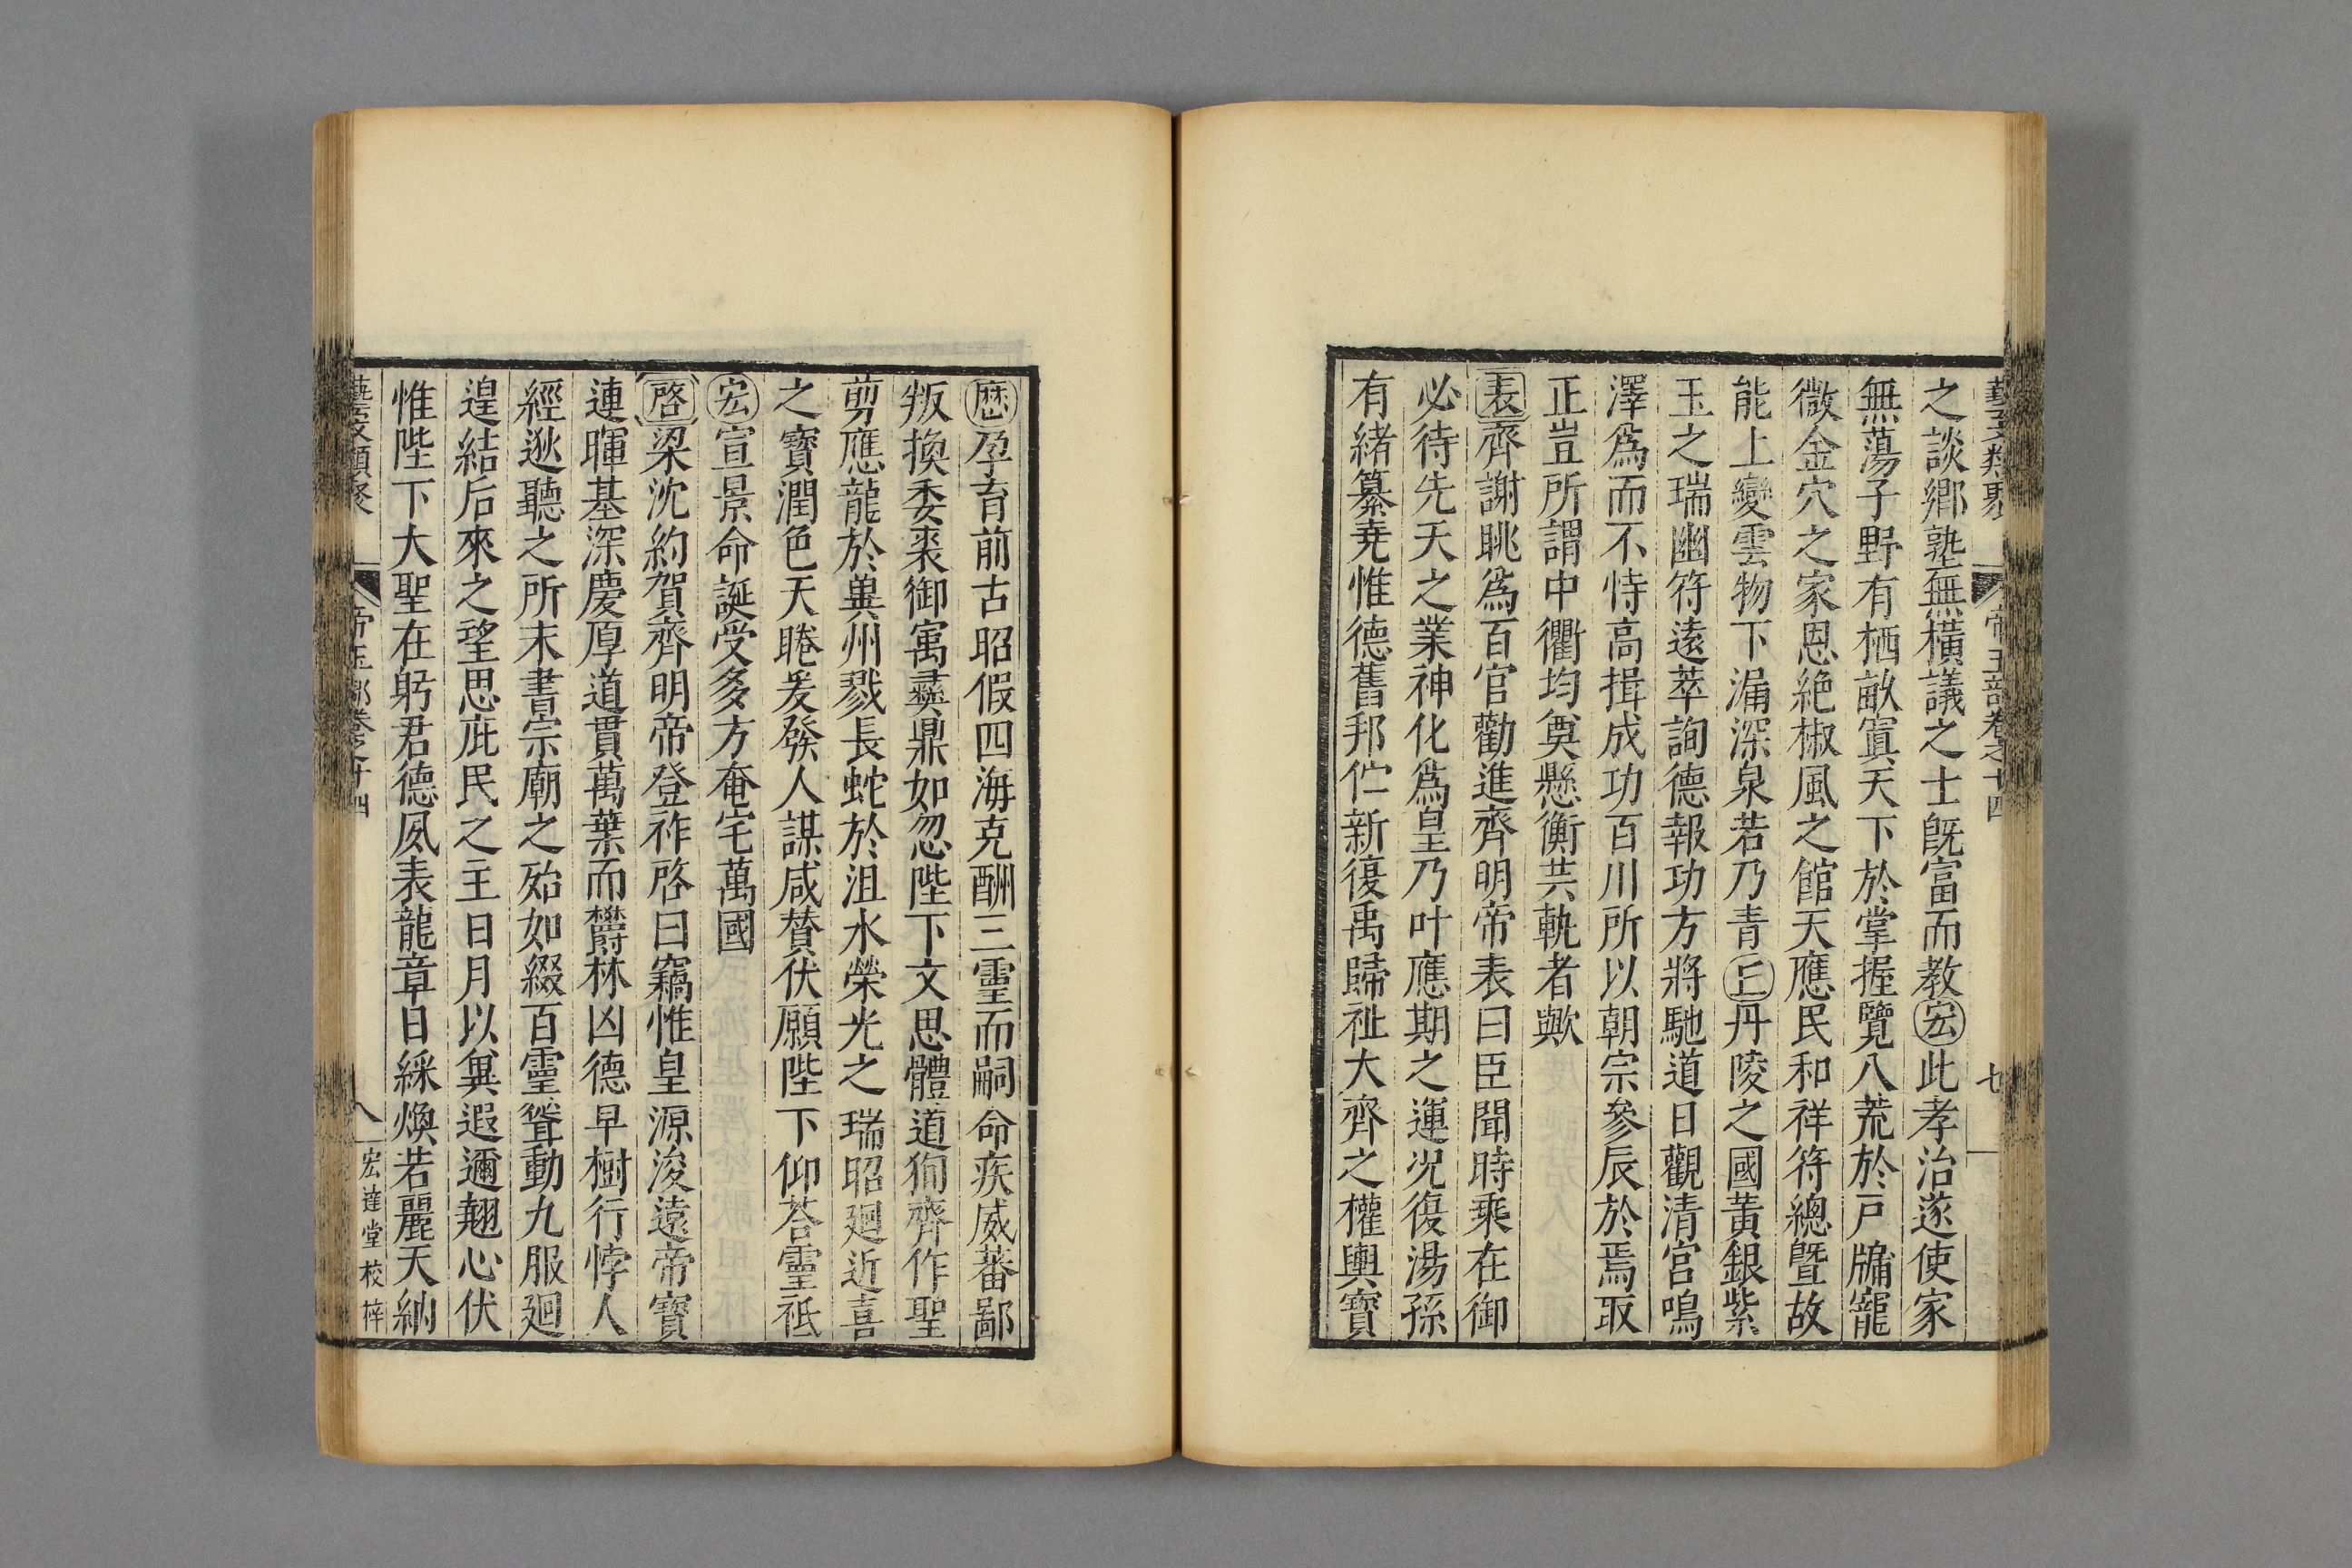 藝文類聚 帝王部卷之十四 七
之談鄉塾無橫議之士既富而教宏此孝治遂使家
無蕩子野有栖畝寘天下於掌握覽八荒於戸牖寵
微金穴之家恩絶椒風之館天應民和祥符總曁故
能上變雲物下漏深泉若乃青丘丹陵之國黃銀紫
玉之瑞幽符遠萃詢德報功方將馳道日觀清宮鳴
澤爲而不恃高揖成功百川所以朝宗參辰於焉取
正豈所謂中衢均奠懸衡共軌者歟
表齊謝眺爲百官勸進齊明帝表曰臣聞時乘在御
必待先天之業神化爲皇乃叶應期之運況復湯孫
有緒纂堯惟德舊邦伫新復禹歸祉大齊之權輿寶
歷孕育前古昭假四海克酬三靈而嗣命疾威蕃鄙
叛換委裘御寓彞鼎如忽陛下文思體道徇齊作聖
剪應龍於兾州戮長蛇於沮水榮光之瑞昭廻近喜
之寶潤色天睠爰發人謀咸賛伏願陛下仰荅靈祗
宏宣景命誕受多方奄宅萬國
啓梁沈約賀齊明帝登祚啓曰竊惟皇源浚遠帝寶
連暉基深慶厚道貫萬葉而欝林凶德早樹行悖人
經逖聽之所未書宗廟之殆如綴百靈聳動九服廻
遑結后來之望思庇民之主日月以兾遐邇翹心伏
惟陛下大聖在躬君德夙表龍章日綵煥若麗天納
藝文類聚 帝王部卷之十四 八 宏達堂校梓